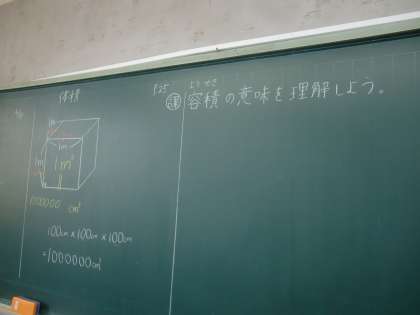 体積
P.25
1m
1m
1m
1m³
1000000 cm³
100cm×100cm×100cm
=1000000cm³
ようせき
課 容積の意味を理解しよう。